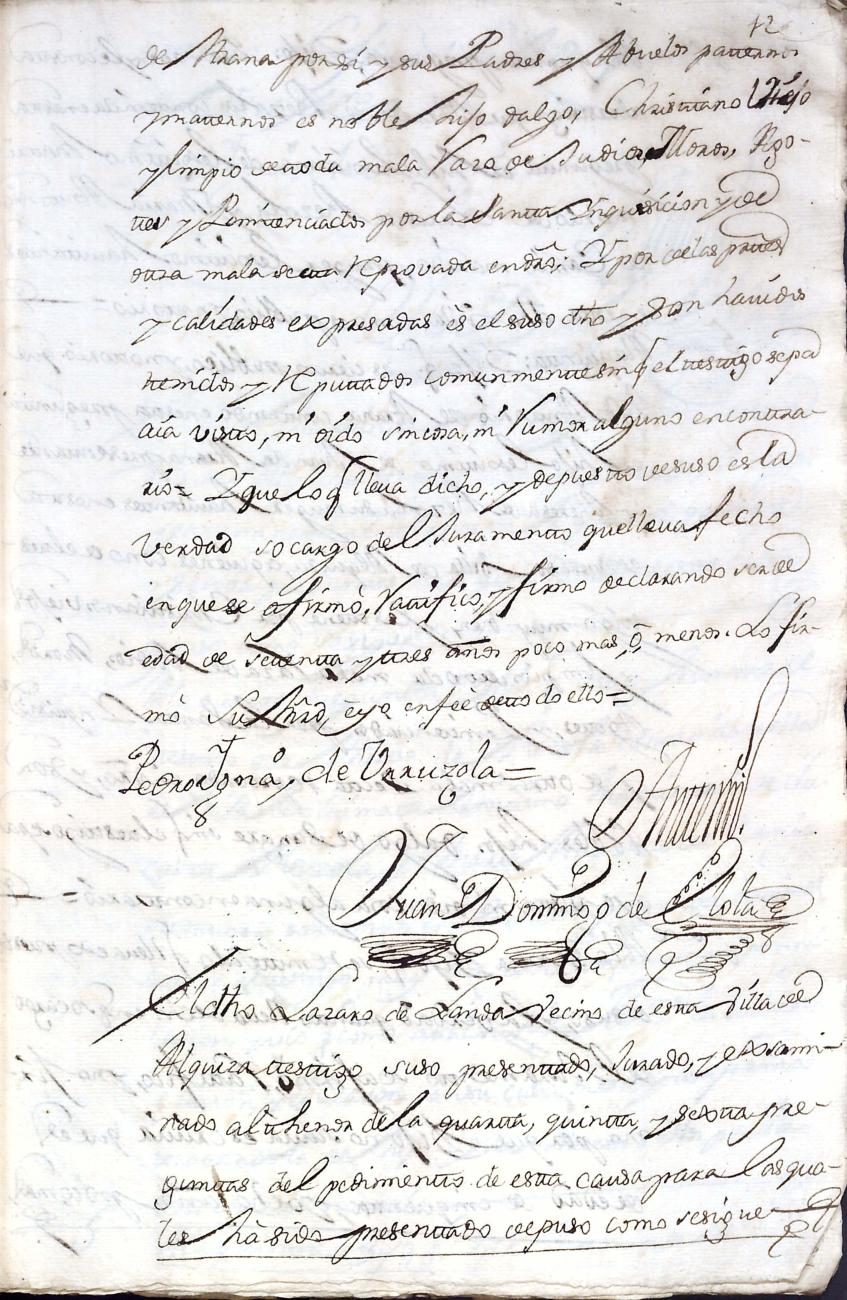 12
de Arana por si y sus Padres y Abuelos patternos
y matternos es noble hijo dalgo, Christtiano Viejo
y limpio de toda mala Raza de Judios, Moros, Ago-
ttes y Penittenciados por la Santta Inquisicion y de
ottra mala sectta Reprovada en dro; Y por de las parttes
y calidades expresadas es el suso dho y son havidos
ttenidos y Reputtados comunmentte sin q el testtigo sepa
aia visto, ni oido sin cosa, ni Rumor alguno en conttra-
rio= Y que lo q lleva dicho, y depuestto de suso es la
verdad so cargo del Juramentto que lleva fecho
en que se afirmó, Ratifico, y firmo declarando ser de
edad de settentta y ttres años poco mas, ó menos. Lo fir-
mó Su Mrd, é yo en feé de ttodo ello=
Pedro Ignaº, de Urruzola=
Antemi,
Juan Domingo de Elola
El dho Lazaro de Landa vecino de estta Villa de
Alquiza testtigo suso presenttado, Jurado, y exsami-
nado al thenor de la quartta, quintta, y sextta pre-
gunttas del pedimientto de estta causa para las qua-
les hà sido presenttado depuso como se sigue